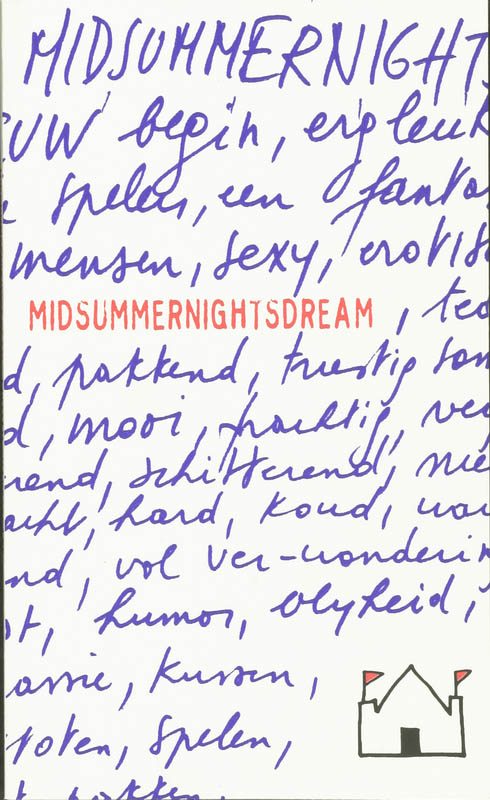 MIDSUMMERNIGHTS
EUW begin, erg leuk
spelen, een fanta
mensen, sexy, erotis
MIDSUMMERNIGHTSDREAM, ted
d, pakkend, truttig som
d, mooi, prachtig, ver
rend, schitterend, nie
acht, hard, koud, wa
nd, vol ver-wonderin
t, humor, vlyheid,
assie, kussen,
toten, spelen,
t pakken,